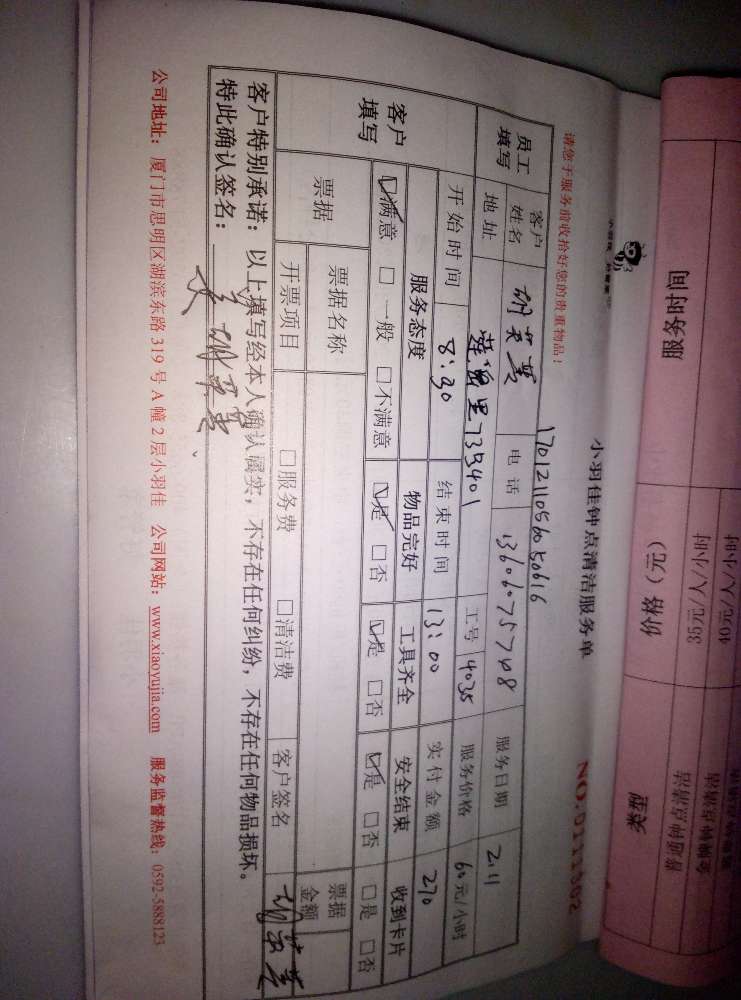 服务时间
价格（元）
类型
35元/人/小时
普通钟点清洁
40元/人/小时
小羽佳钟点清洁服务单
NO.0111302
请您于服务前收拾好您的贵重物品！
1701211056050616
员工填写
客户姓名
电话
13606075748
服务日期
2.11
地址
莲
里73号401
工号
4035
服务价格
60元/小时
客户填写
开始时间
8:30
结束时间
13:00
实付金额
270
服务态度
物品完好
工具齐全
安全结束
收到卡片
☑满意 □一般 □不满意
☑是 □否
☑是 □否
☑是 □否
□是 □否
票据
票据名称
票据金额
开票项目
□服务费
□清洁费
客户签名
客户特别承诺：以上填写经本人确认属实，不存在任何纠纷，不存在任何物品损坏。
特此确认签名：
公司地址：厦门市思明区湖滨东路319号A幢2层小羽佳 公司网站：www.xiaoyujia.com 服务监督热线：0592-5888123